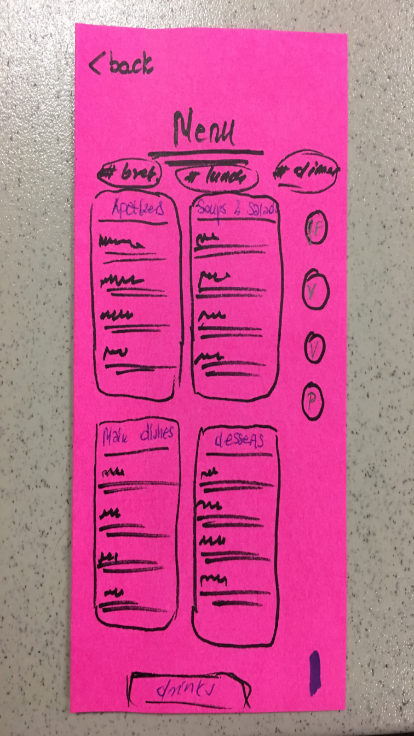 < back
Menu
# bref # lunch # dinner
Apetizers Soups & Salads
GF
V
V
P
Main dishes desserts
drinks